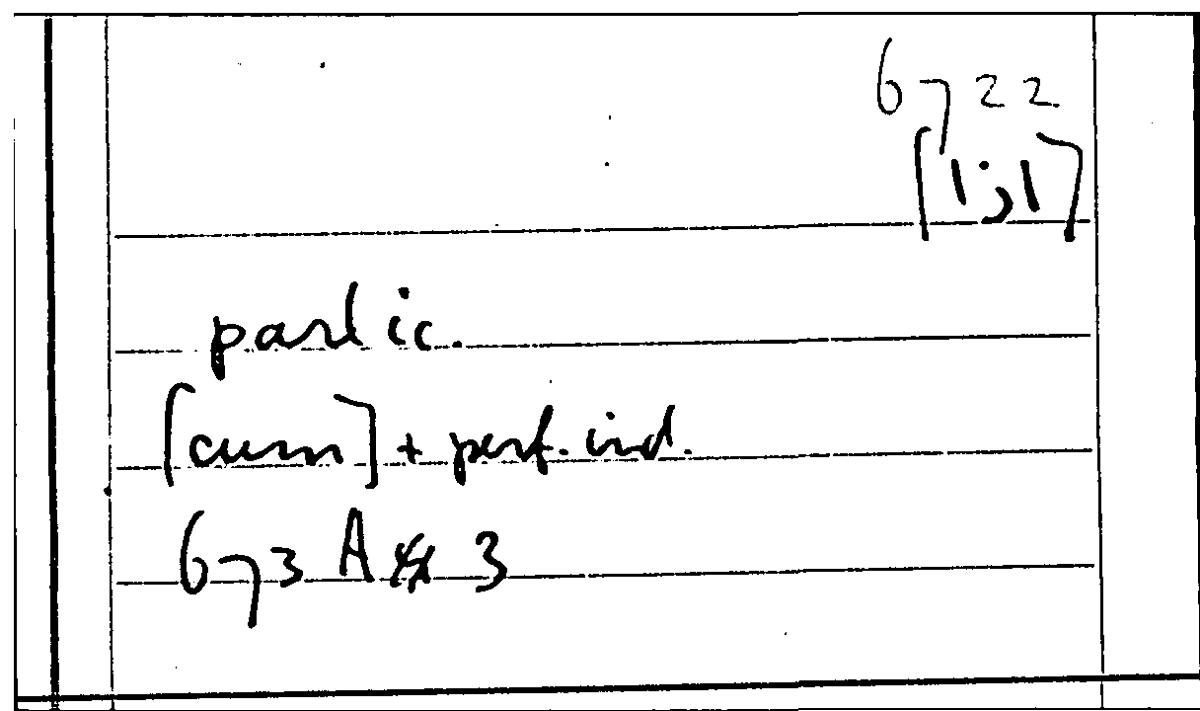 6722
[1;1]
partic.
[cum] + perf. ind.
673 A 3